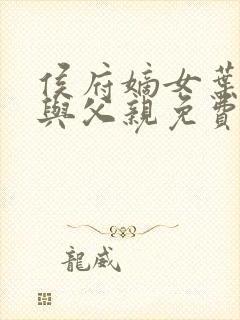 侯府嫡女葉
與父親免費
龍威